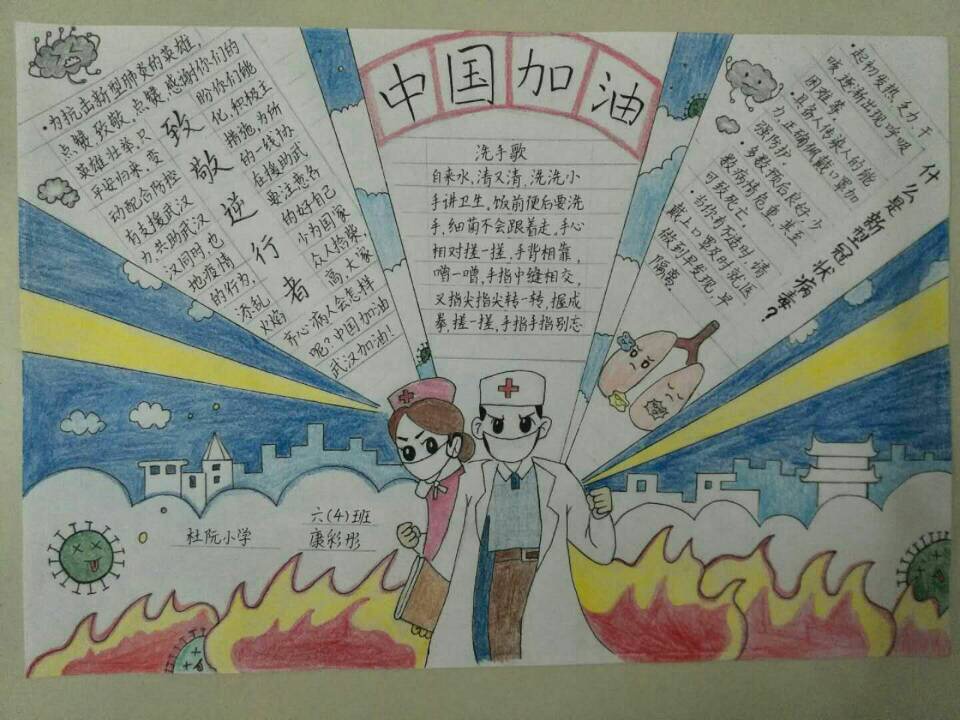 中国加油
致敬逆行者
·为抗击新型肺炎的英雄,
点赞,致敬,点赞,感谢你们的
英雄壮举,只盼你们能
平安归来,变化,积极主
动配合防控措施,为所
有支援武汉的一线协
力,共助武汉在援助武
汉同时,也要注意养
地疫情的好自己
的行为,少为国家
添乱,众人拾柴,
火焰高,大家
齐心,病人会怎样
呢?中国加油
武汉加油!
洗手歌
自来水,清又清,洗洗小
手讲卫生,饭前便后要洗
手,细菌不会跟着走,手心
相对搓一搓,手背相靠,
噌一噌,手指中缝相交,
叉指尖指尖转一转,握成
拳,搓一搓,手指手指别忘
什么是新型冠状病毒?
·起初发热,乏力,干
咳,逐渐出现呼吸
困难等,
·具备人传染人的能
力,正确佩戴口罩加
强防护
·多数预后良好,少
数病情危重,甚至
可致死亡,
·当你有不适时,请
戴上口罩及时就医
做到早发现,早
隔离。
杜阮小学
六(4)班
康彩彤